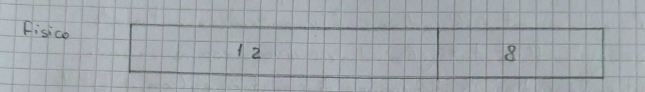 Fisico
12
8